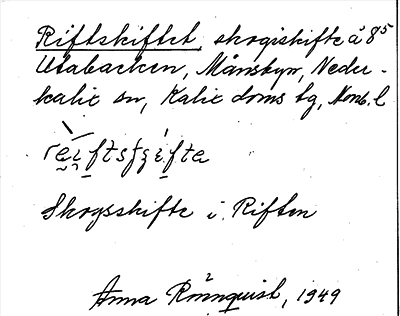 Riftskiftet, skogsskifte å 8⁵
Utabacken, Månsbyn, Neder-
kalix sn, Kalix doms lg, Nonb. l
Skogsskifte i Riften
Anna Rönnquist, 1949